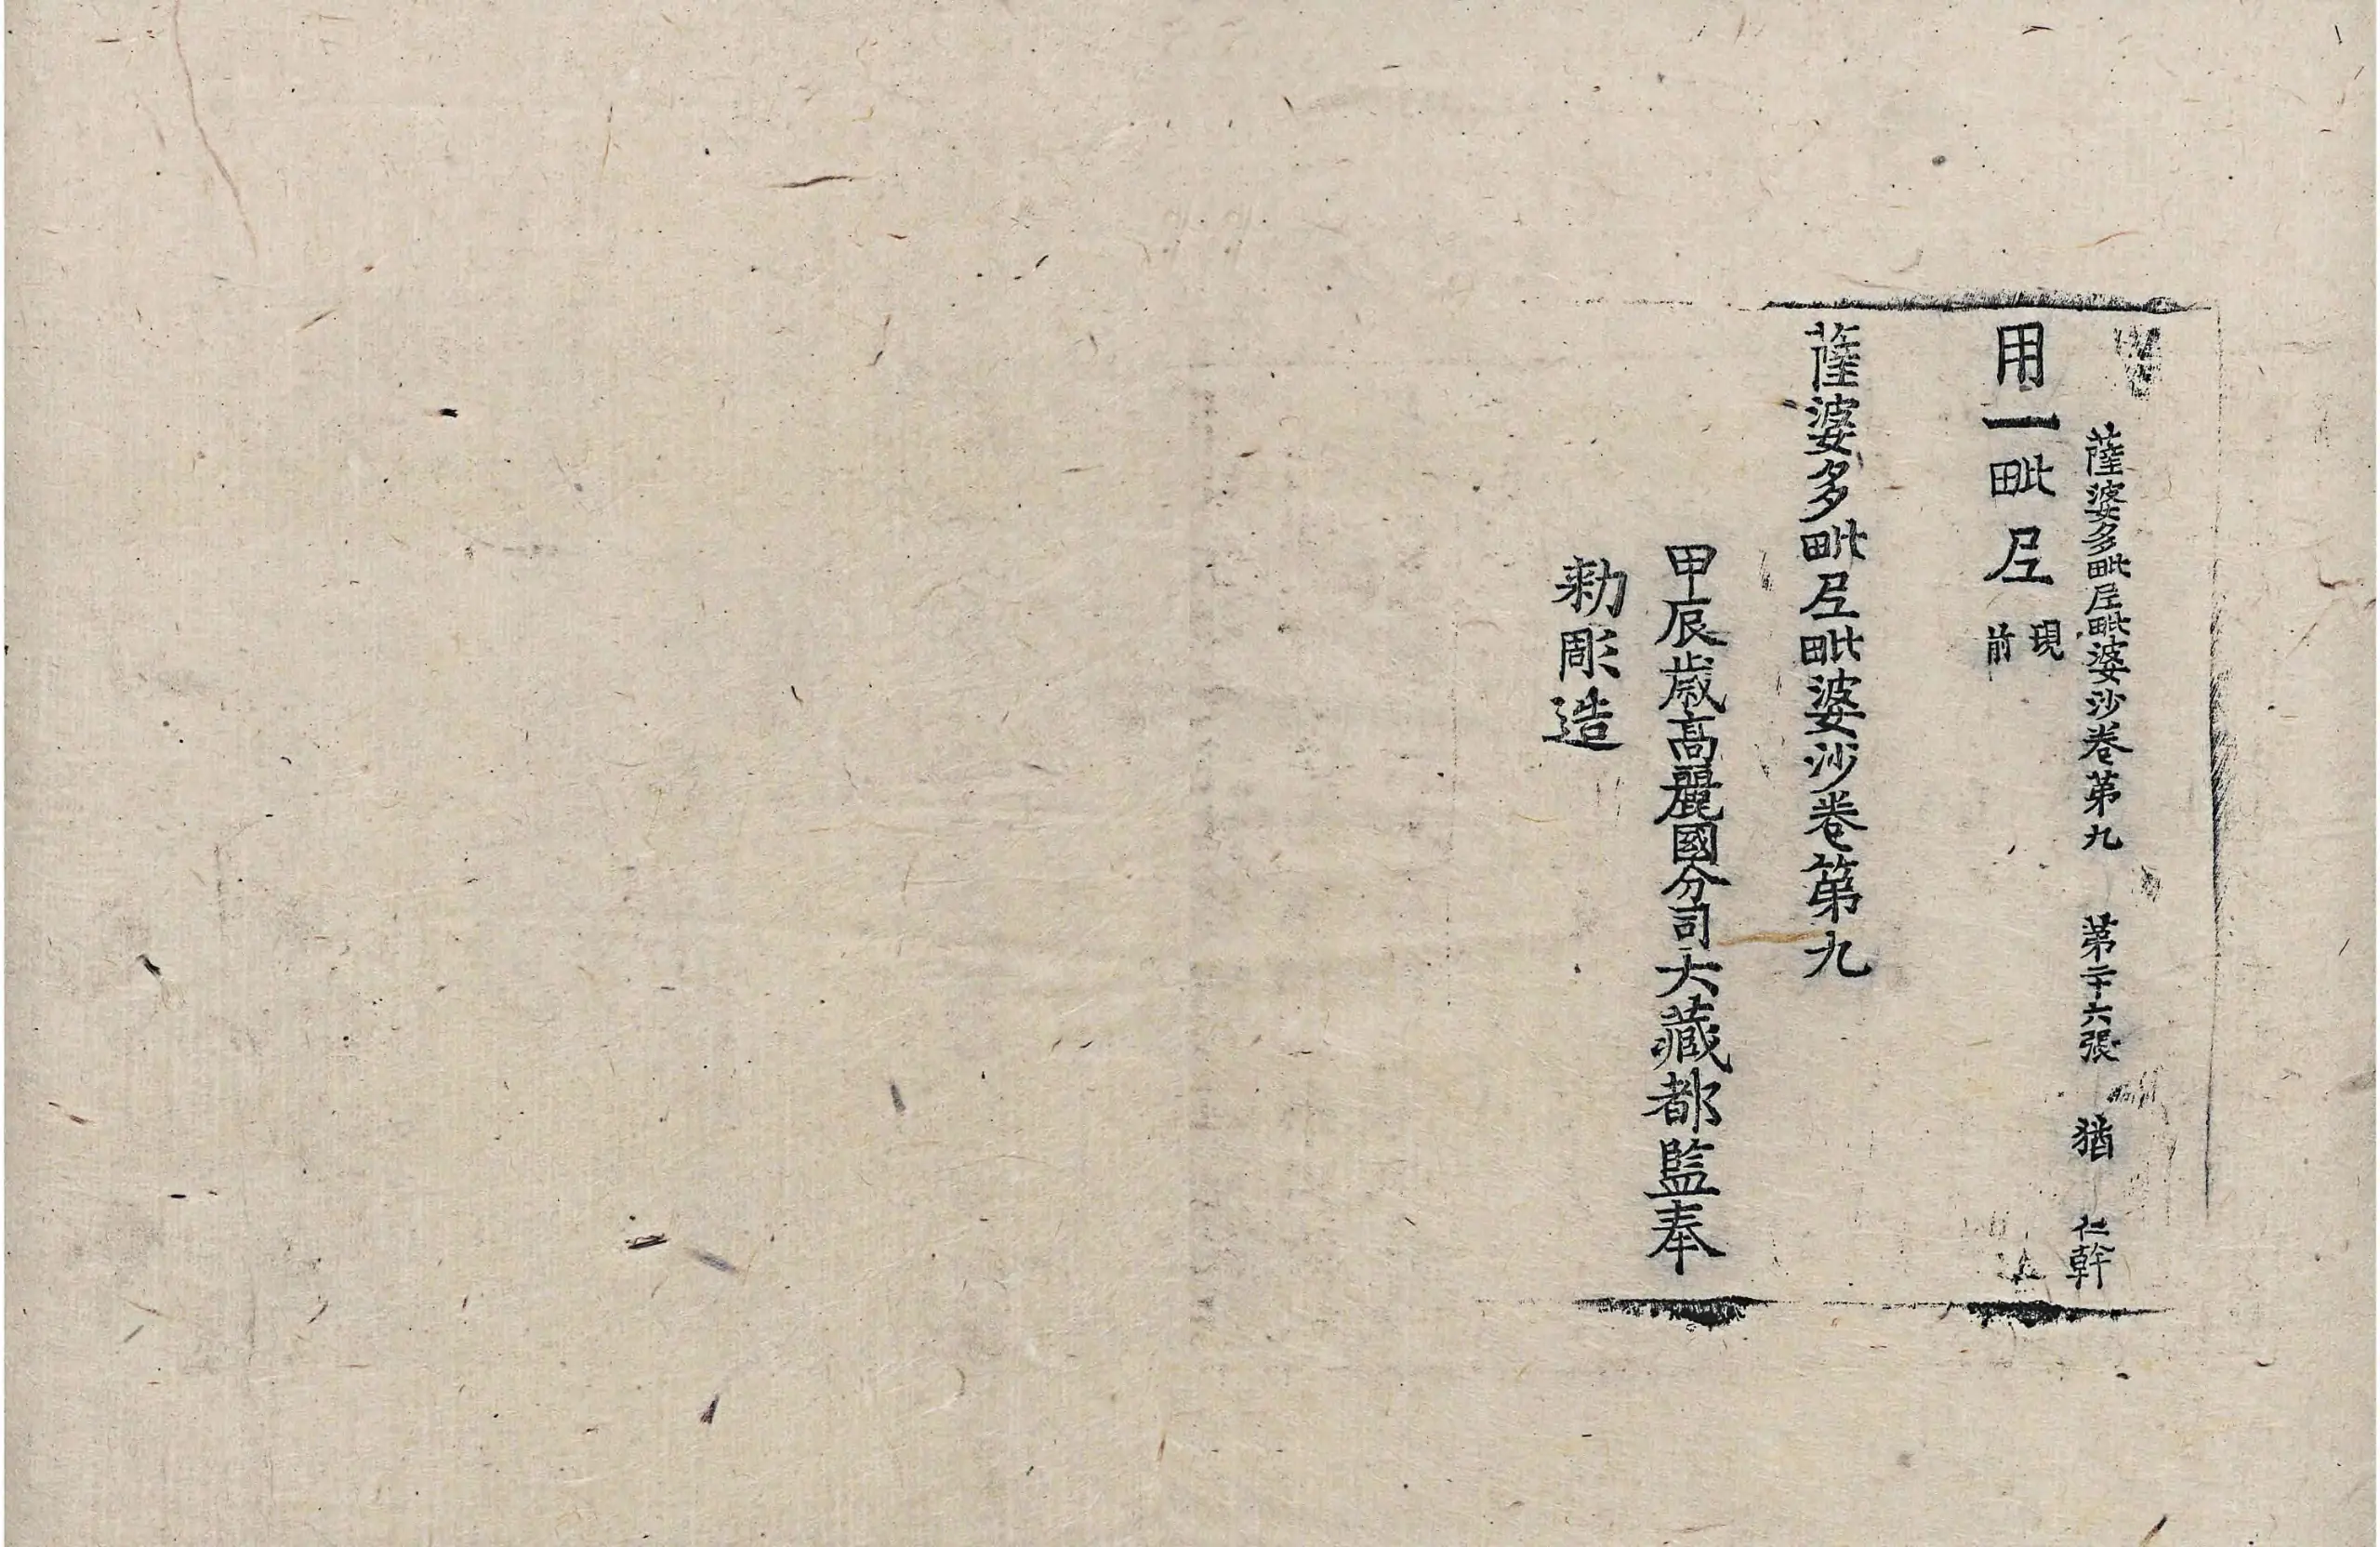 薩婆多毗𡰱毗婆沙卷第九 第二十六張 猶 仁幹
用一毗𡰱現前
薩婆多毗𡰱毗婆沙卷第九
甲辰歲高麗國分司大藏都監奉
勑彫造